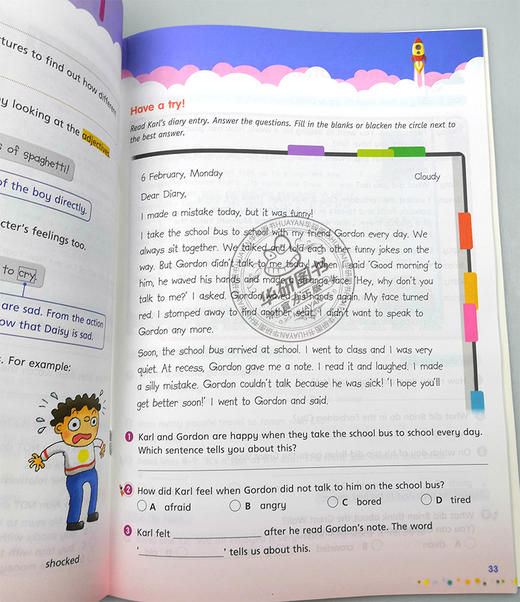 tures to find out how different
y looking at the adjectives.
s of spaghetti!
of the boy directly.
cter's feelings too.
to cry.
are sad. From the action
ow that Daisy is sad.
. For example:
shocked
Have a try!
Read Karl's diary entry. Answer the questions. Fill in the blanks or blacken the circle next to
the best answer.
6 February, Monday Cloudy
Dear Diary,
I made a mistake today, but it was funny!
I take the school bus to school with my friend Gordon every day. We
always sit together. We talked and told each other funny jokes on the
way. But Gordon didn't talk to me today. When I said 'Good morning' to
him, he waved his hands and made a strange face. 'Hey, why don't you
talk to me?' I asked. Gordon waved his hands again. My face turned
red. I stomped away to find another seat. I didn't want to speak to
Gordon any more.
Soon, the school bus arrived at school. I went to class and I was very
quiet. At recess, Gordon gave me a note. I read it and laughed. I made
a silly mistake. Gordon couldn't talk because he was sick! 'I hope you'll
get better soon!' I went to Gordon and said.
1 Karl and Gordon are happy when they take the school bus to school every day.
Which sentence tells you about this?
2 How did Karl feel when Gordon did not talk to him on the school bus?
A afraid B angry C bored D tired
3 Karl felt ______ after he read Gordon's note. The word
'______' tells us about this.
33